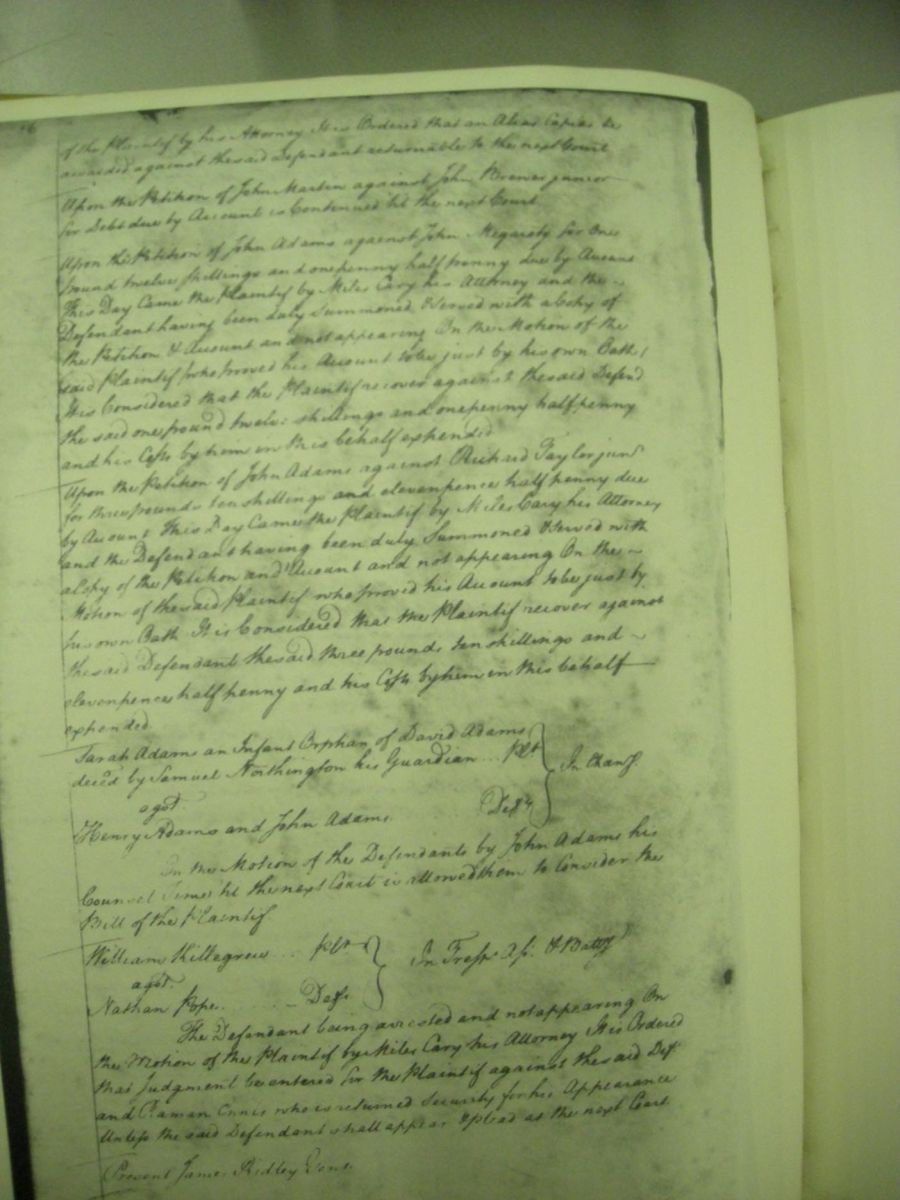 of the Plaintif by his Attorney It is Ordered that an Alias Capias be
awarded against the said Defendant returnable to the next Court
Upon the Petition of John Martin against John Brewer junior
for Debt due by Account is Continued til the next Court
Upon the Petition of John Adams against John Megarety for One
pound twelve shillings and one penny half penny due by Account
This Day Came the Plaintif by Miles Cary his Attorney and the
Defendant having been duly Summoned & Served with a Copy of
the Petition & Account and not appearing On the Motion of the
said Plaintif who proved his Account to be just by his own Oath
It is Considered that the Plaintif recover against the said Defend
the said one pound twelve shillings and one penny half penny
and his Costs by him in this behalf expended
Upon the Petition of John Adams against Richard Taylor junr
for three pounds ten shillings and eleven pence half penny due
by Account This Day Came the Plaintif by Miles Cary his Attorney
and the Defendant having been duly Summoned & Served with
a Copy of the Petition and Account and not appearing On the
Motion of the said Plaintif who proved his Account to be just by
his own Oath It is Considered that the Plaintif recover against
the said Defendant the said three pounds ten shillings and
eleven pence half penny and his Costs by him in this behalf
expended
Sarah Adams an Infant Orphan of David Adams
decd by Samuel Northington his Guardian ... Plt In Chan
agst
Henry Adams and John Adams Defts
On the Motion of the Defendants by John Adams his
Counsel Time til the next Court is allowed them to Consider the
Bill of the Plaintif
William Killegrew ... Plt In Tresps & Battry
agst
Nathan Pope ... Deft
The Defendant being arrested and not appearing On
the Motion of the Plaintif by Miles Cary his Attorney It is Ordered
that Judgment be entered for the Plaintif against the said Deft
and who is returned Security for his Appearance
Unless the said Defendant shall appear & plead at the next Court
Present James Ridley Gent.